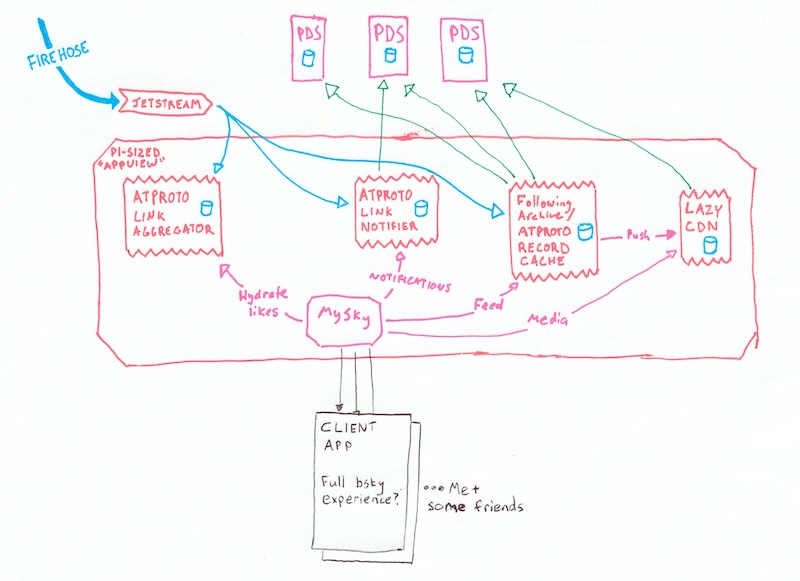 PDS
PDS
PDS
FIREHOSE
JETSTREAM
PI-SIZED
"APPVIEW"
ATPROTO
LINK
AGGREGATOR
ATPROTO
LINK
NOTIFIER
Following
Archive/
ATPROTO
RECORD
CACHE
Push
LAZY
CDN
Hydrate
likes
NOTIFICATIONS
Feed
Media
MySky
CLIENT
APP
Full bsky
experience?
... Me +
some friends